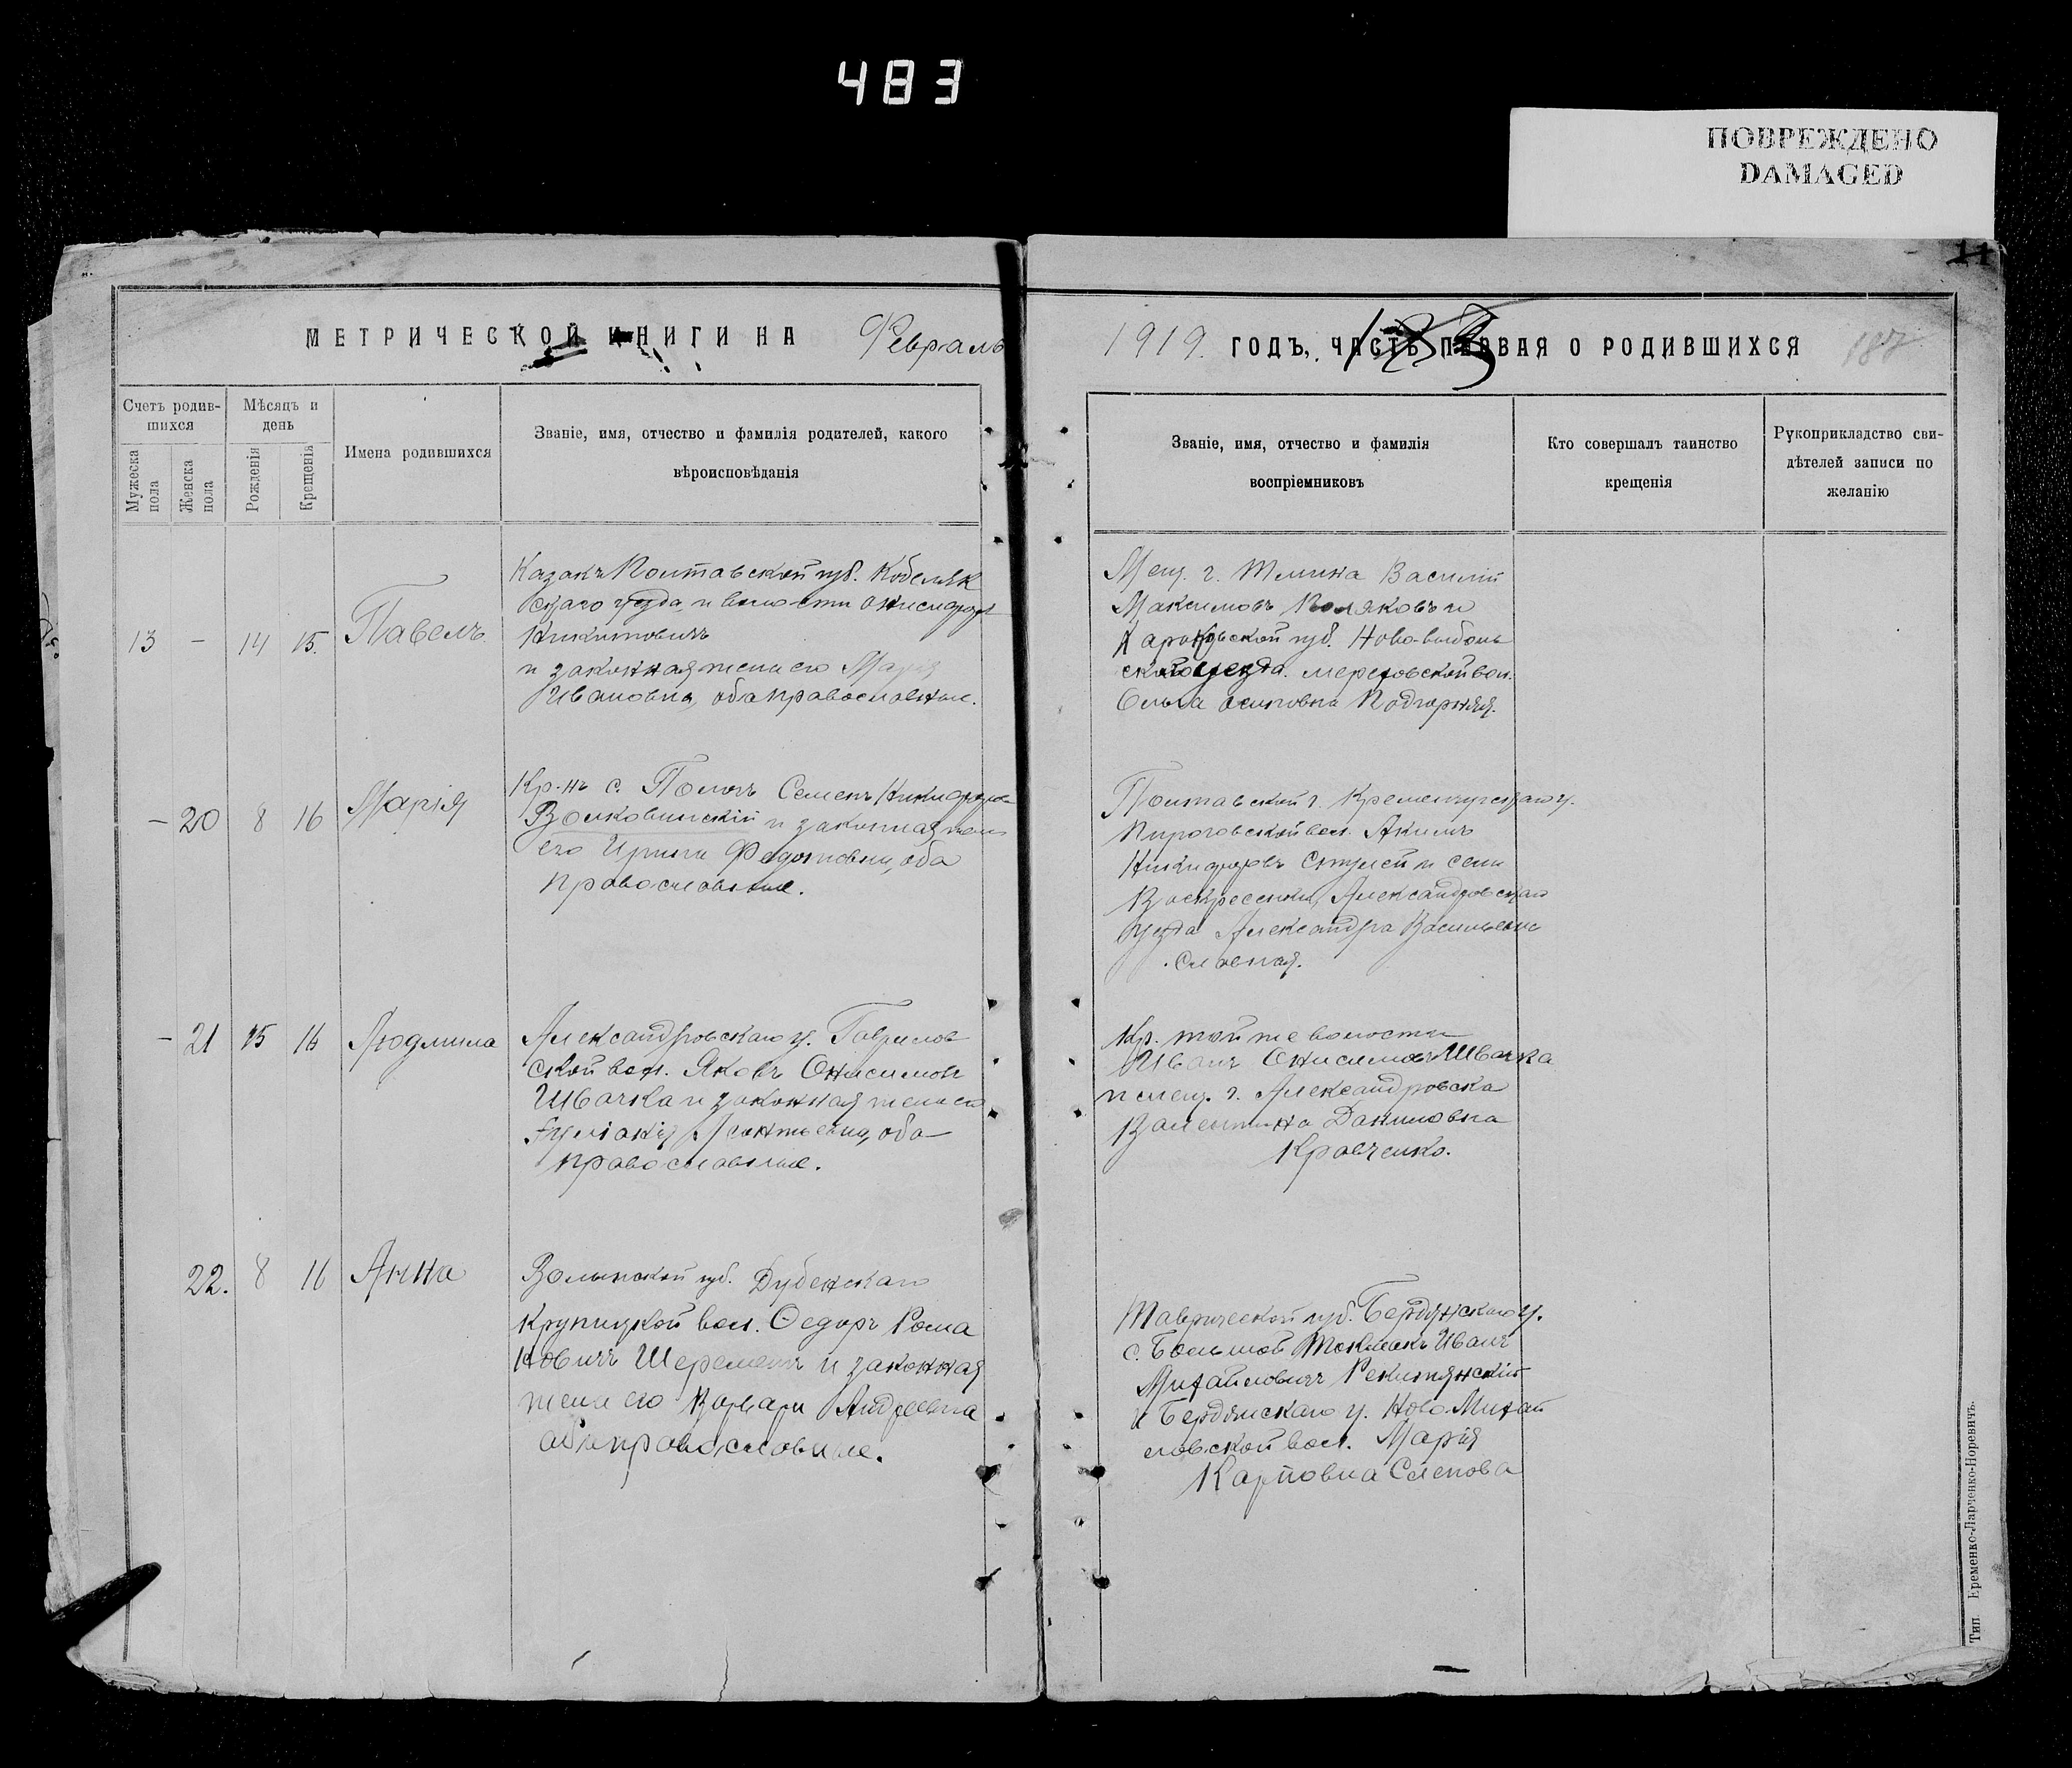 483
ПОВРЕЖДЕНО
DAMAGED
МЕТРИЧЕСКОЙ КНИГИ НА Февраль
1919. ГОДЪ, ЧАСТЬ ПЕРВАЯ О РОДИВШИХСЯ 187
Счетъ родив-
шихся
Мужеска
пола
Женска
пола
Мѣсяцъ и
день
Рожденія
Крещенія
Имена родившихся
Званіе, имя, отчество и фамилія родителей, какого
вѣроисповѣданія
Званіе, имя, отчество и фамилія
воспріемниковъ
Кто совершалъ таинство
крещенія
Рукоприкладство сви-
дѣтелей записи по
желанію
13 - 14 15. Павелъ
Казакъ Полтавской губ. Кобеляк
скаго уезда и волости
Никитовичъ
и законная жена его Мария
Ивановна, оба православные.
Мещ. г. Василий
Максимовъ Поляковъ и
Харьковской губ.
уезда. мерефовской вол.
Ольга осиповна Подгорняя.
- 20 8 16 Марія
Кр-нъ с. Пологъ Семенъ
Волковинскій и законная жена
его Ирина Федотовна, оба
православные.
Полтавской г. Кременчугскаго у.
Пироговской вол. Акимъ
Никифоровъ и села
Воскресенки, Александровскаго
уезда Александра Васильевна
- 21 15 16 Людмила
Александровскаго у. Гаврилов
ской вол. Яковъ Онисимовъ
Швачка и законная жена его
Леонтьевна, оба
православные.
Кр. той же волости
Иванъ Онисимовъ Швачка
и мещ. г. Александровска
Валентина Даниловна
Кравченко.
22. 8 16 Анна
Волынской губ. Дубенскаго
Крупецкой вол. Ѳедоръ Рома
новичъ Шереметъ и законная
жена его Варвара Андреевна
оба православные.
Таврической губ. Бердянскаго у.
с. Большой Токмакъ Иванъ
Михайловичъ
и Бердянскаго у. Ново-Михай
ловской вол. Марія
Карповна Слепова
Тип. Еременко-Ларченко-Норевичъ.